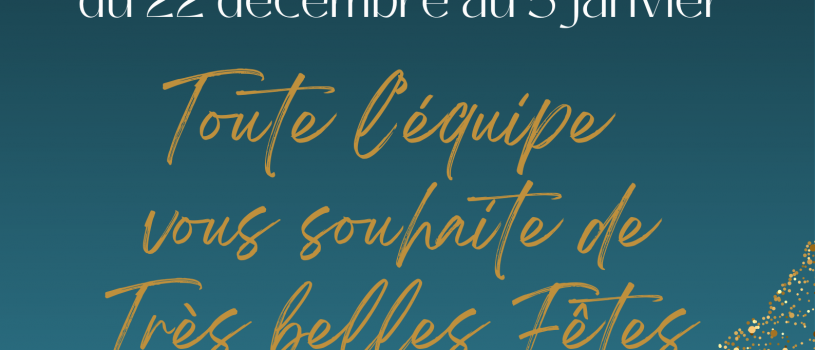 du 22 décembre au 5 janvier
Toute l'équipe
vous souhaite de
Très belles Fêtes